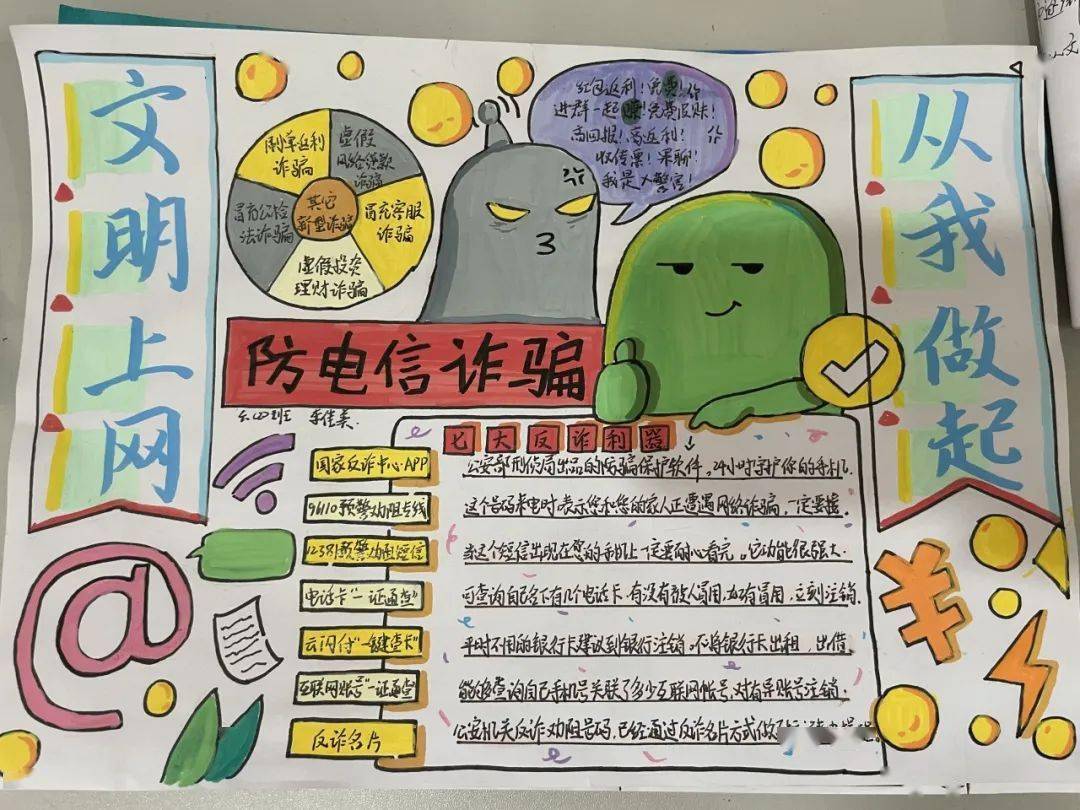 文明上网
从我做起
刷单返利
诈骗
虚假
网络贷款
诈骗
冒充客服
诈骗
虚假投资
理财诈骗
冒充公检
法诈骗
其它
新型诈骗
红包返利！免费！
进群一起赚！免费收贝！
高回报！高返利！
收传票！果聊！
我是人警官！
防电信诈骗
七大反诈利器
国家反诈中心APP
公安部刑侦局出品的防骗保护软件，24小时守护你的手机.
96110预警劝阻专线
这个号码来电时，表示您和您的家人正遭遇网络诈骗，一定要接.
12381预警劝阻短信
当这个短信出现在您的手机上一定要耐心看完。它功能很强大.
电话卡“一证通查”
可查询自己名下有几个电话卡.有没有被人冒用.如有冒用.立刻注销.
云闪付“一键查卡”
平时不用的银行卡建议到银行注销。不将银行卡出租，出借
互联网账号“一证通查”
能够查询自己手机号关联了多少互联网帐号，对有异账号注销.
反诈名片
公安机关反诈劝阻号码.已经通过反诈名片方式做